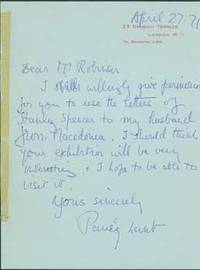 April 27. 71
Dear Mr Robinson
I willingly give permission
for you to use the letters of
Stanley Spencer to my husband
from Macedonia. I should think
your exhibition will be very
interesting & I hope to be able to
visit it.
Yours sincerely